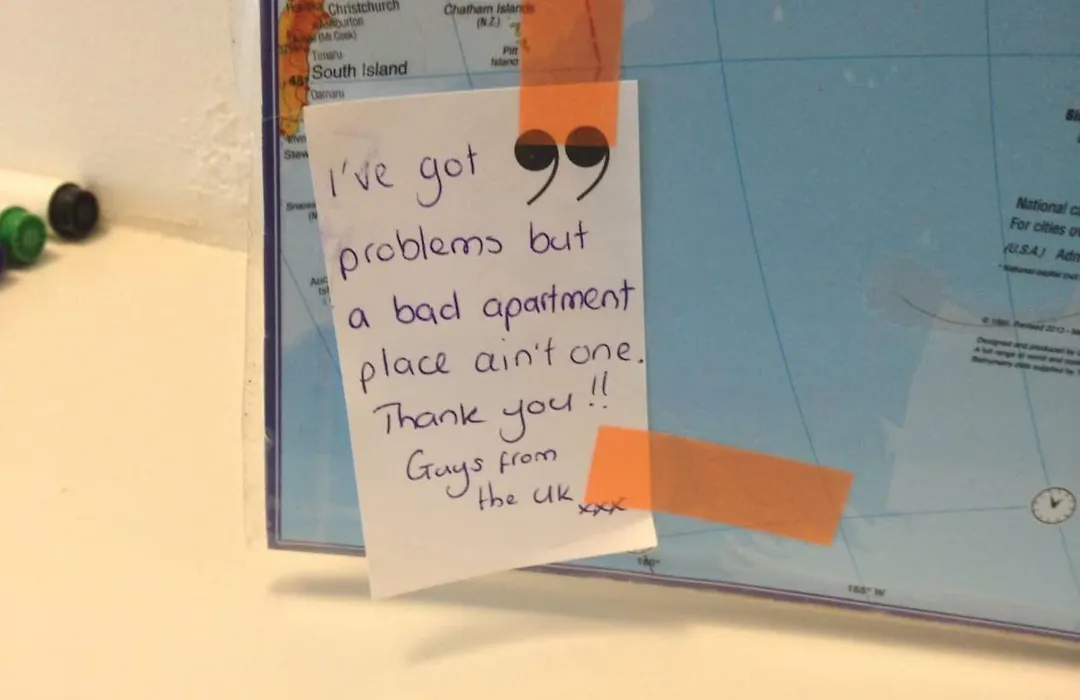 Christchurch
Chatham Islands
(N.Z.)
Ashburton
(Mt Cook)
Timaru
Pitt
Island
South Island
45°
Oamaru
Stew
I've got
problems but
a bad apartment
place ain't one.
Thank you !!
Guys from
the UK xxx
National ca
For cities ov
(U.S.A.) Adm
180°
165° W